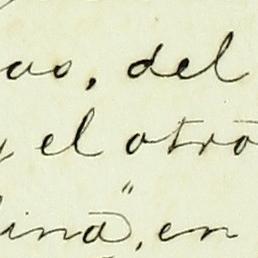 as, del
y el otro
ina", en